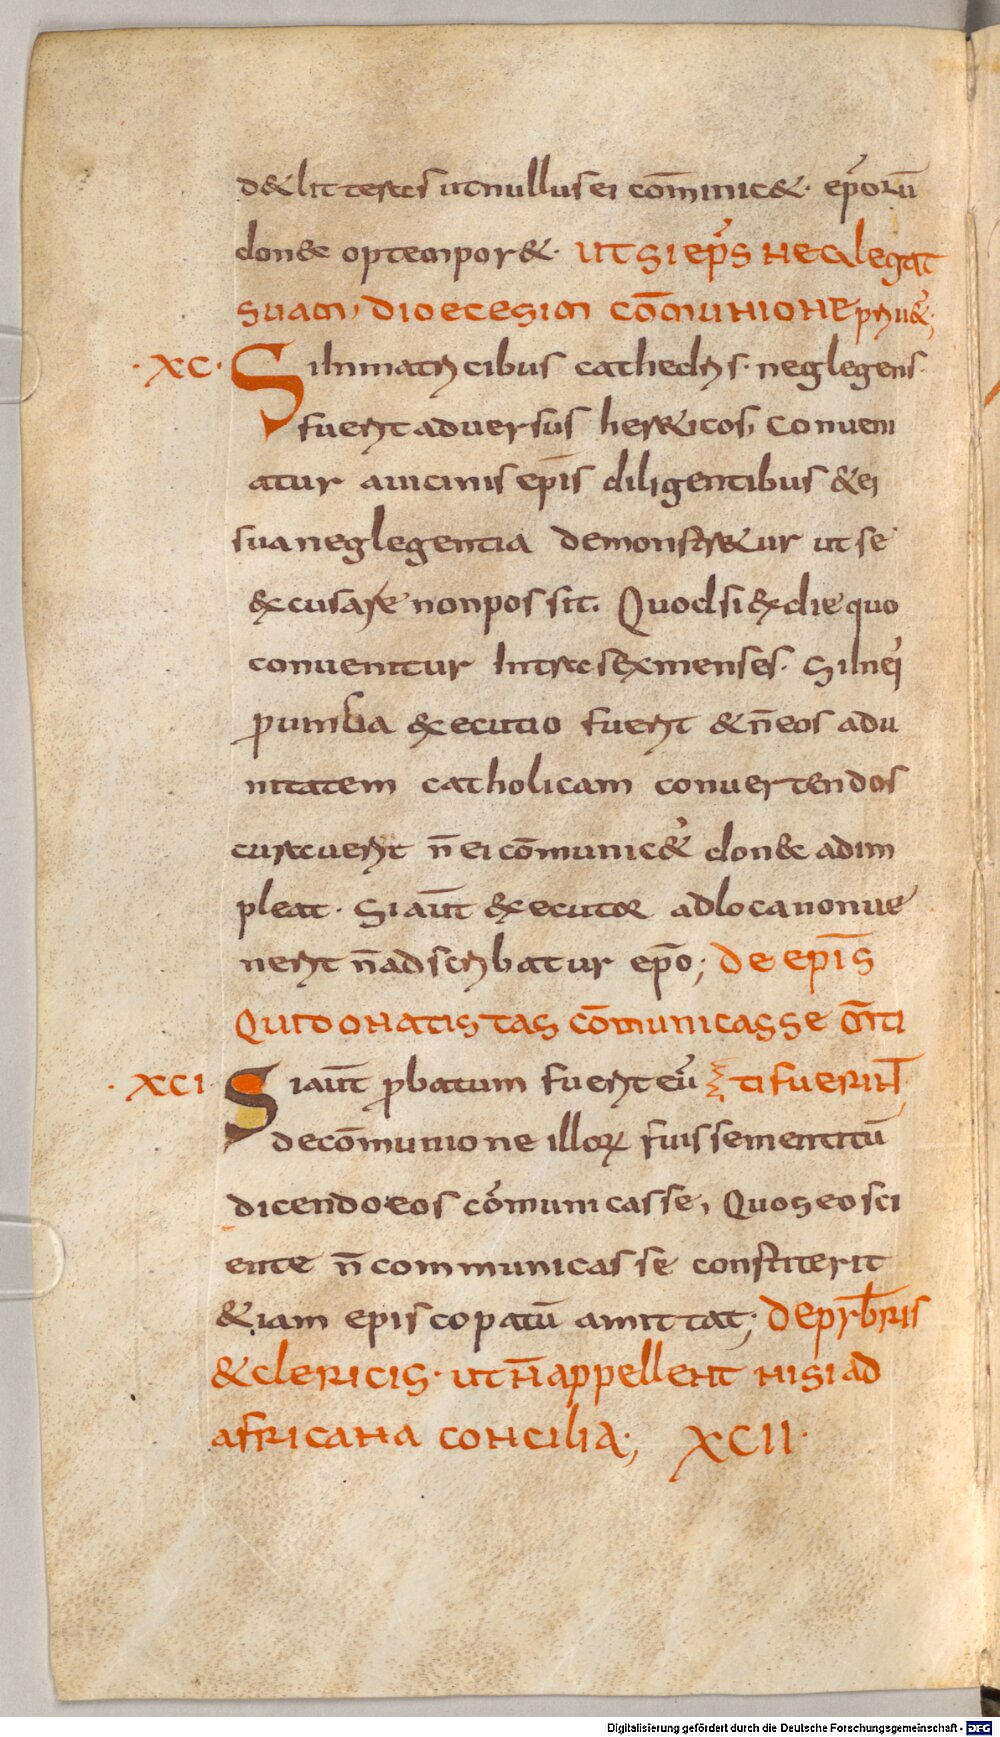 d&lictestes ut nullus ei cōmunic&· ep̄orū
don&c optemper&· UT SI EP̄S NEGLEGAT
SUAM DIOECESIM CŌMUNIONE priu&;
·XC· Si In matricibus cathedris· neglegens·
fuerit adversus her&icos, Conueni
atur a uicinis ep̄is diligentibus & ei
sua neglegentia demonstr&ur ut se
excusare non possit. Quod si ex die quo
conuenitur Intra sex menses· Si In ei
p̄uincia executio fuerit & n̄ eos ad u
nitatem catholicam convertendos
curauerit n̄ ei cōmunic& donec adim
pleat· Si aūt executor ad loca non ue
nerit n̄ adscribatur ep̄o; DE EP̄IS
QUI DONATISTAS CŌMUNICASSE M̄TI
·XCI Si aūt p̄batum fuerit eū TI FUERINT
de cōmunione illorum fuisse mentitū
dicendo eos cōmunicasse, Quos eo sci
ente n̄ communicasse constiterit
&iam episcopatū amittat; DE PRB̄RIS
& CLERICIS· UT N̄ APPELLENT NISI AD
AFRICANA CONCILIA; XCII·
Digitalisierung gefördert durch die Deutsche Forschungsgemeinschaft - DFG